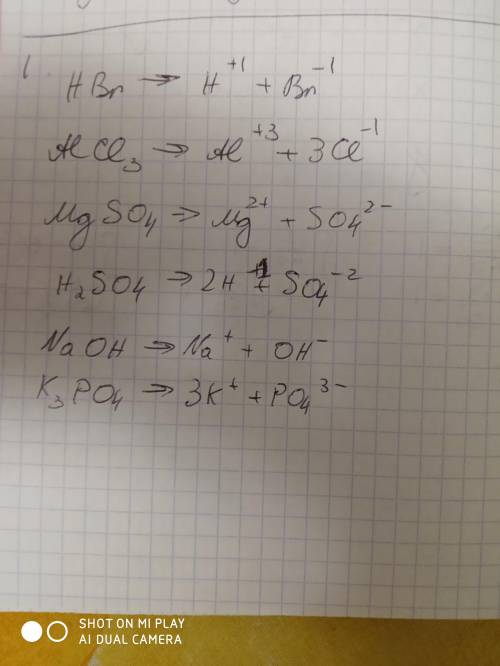 1 HBr → H⁺¹ + Br⁻¹
AlCl₃ → Al⁺³ + 3Cl⁻¹
MgSO₄ → Mg²⁺ + SO₄²⁻
H₂SO₄ → 2H⁺¹ + SO₄⁻²
NaOH → Na⁺ + OH⁻
K₃PO₄ → 3K⁺ + PO₄³⁻
SHOT ON MI PLAY
AI DUAL CAMERA